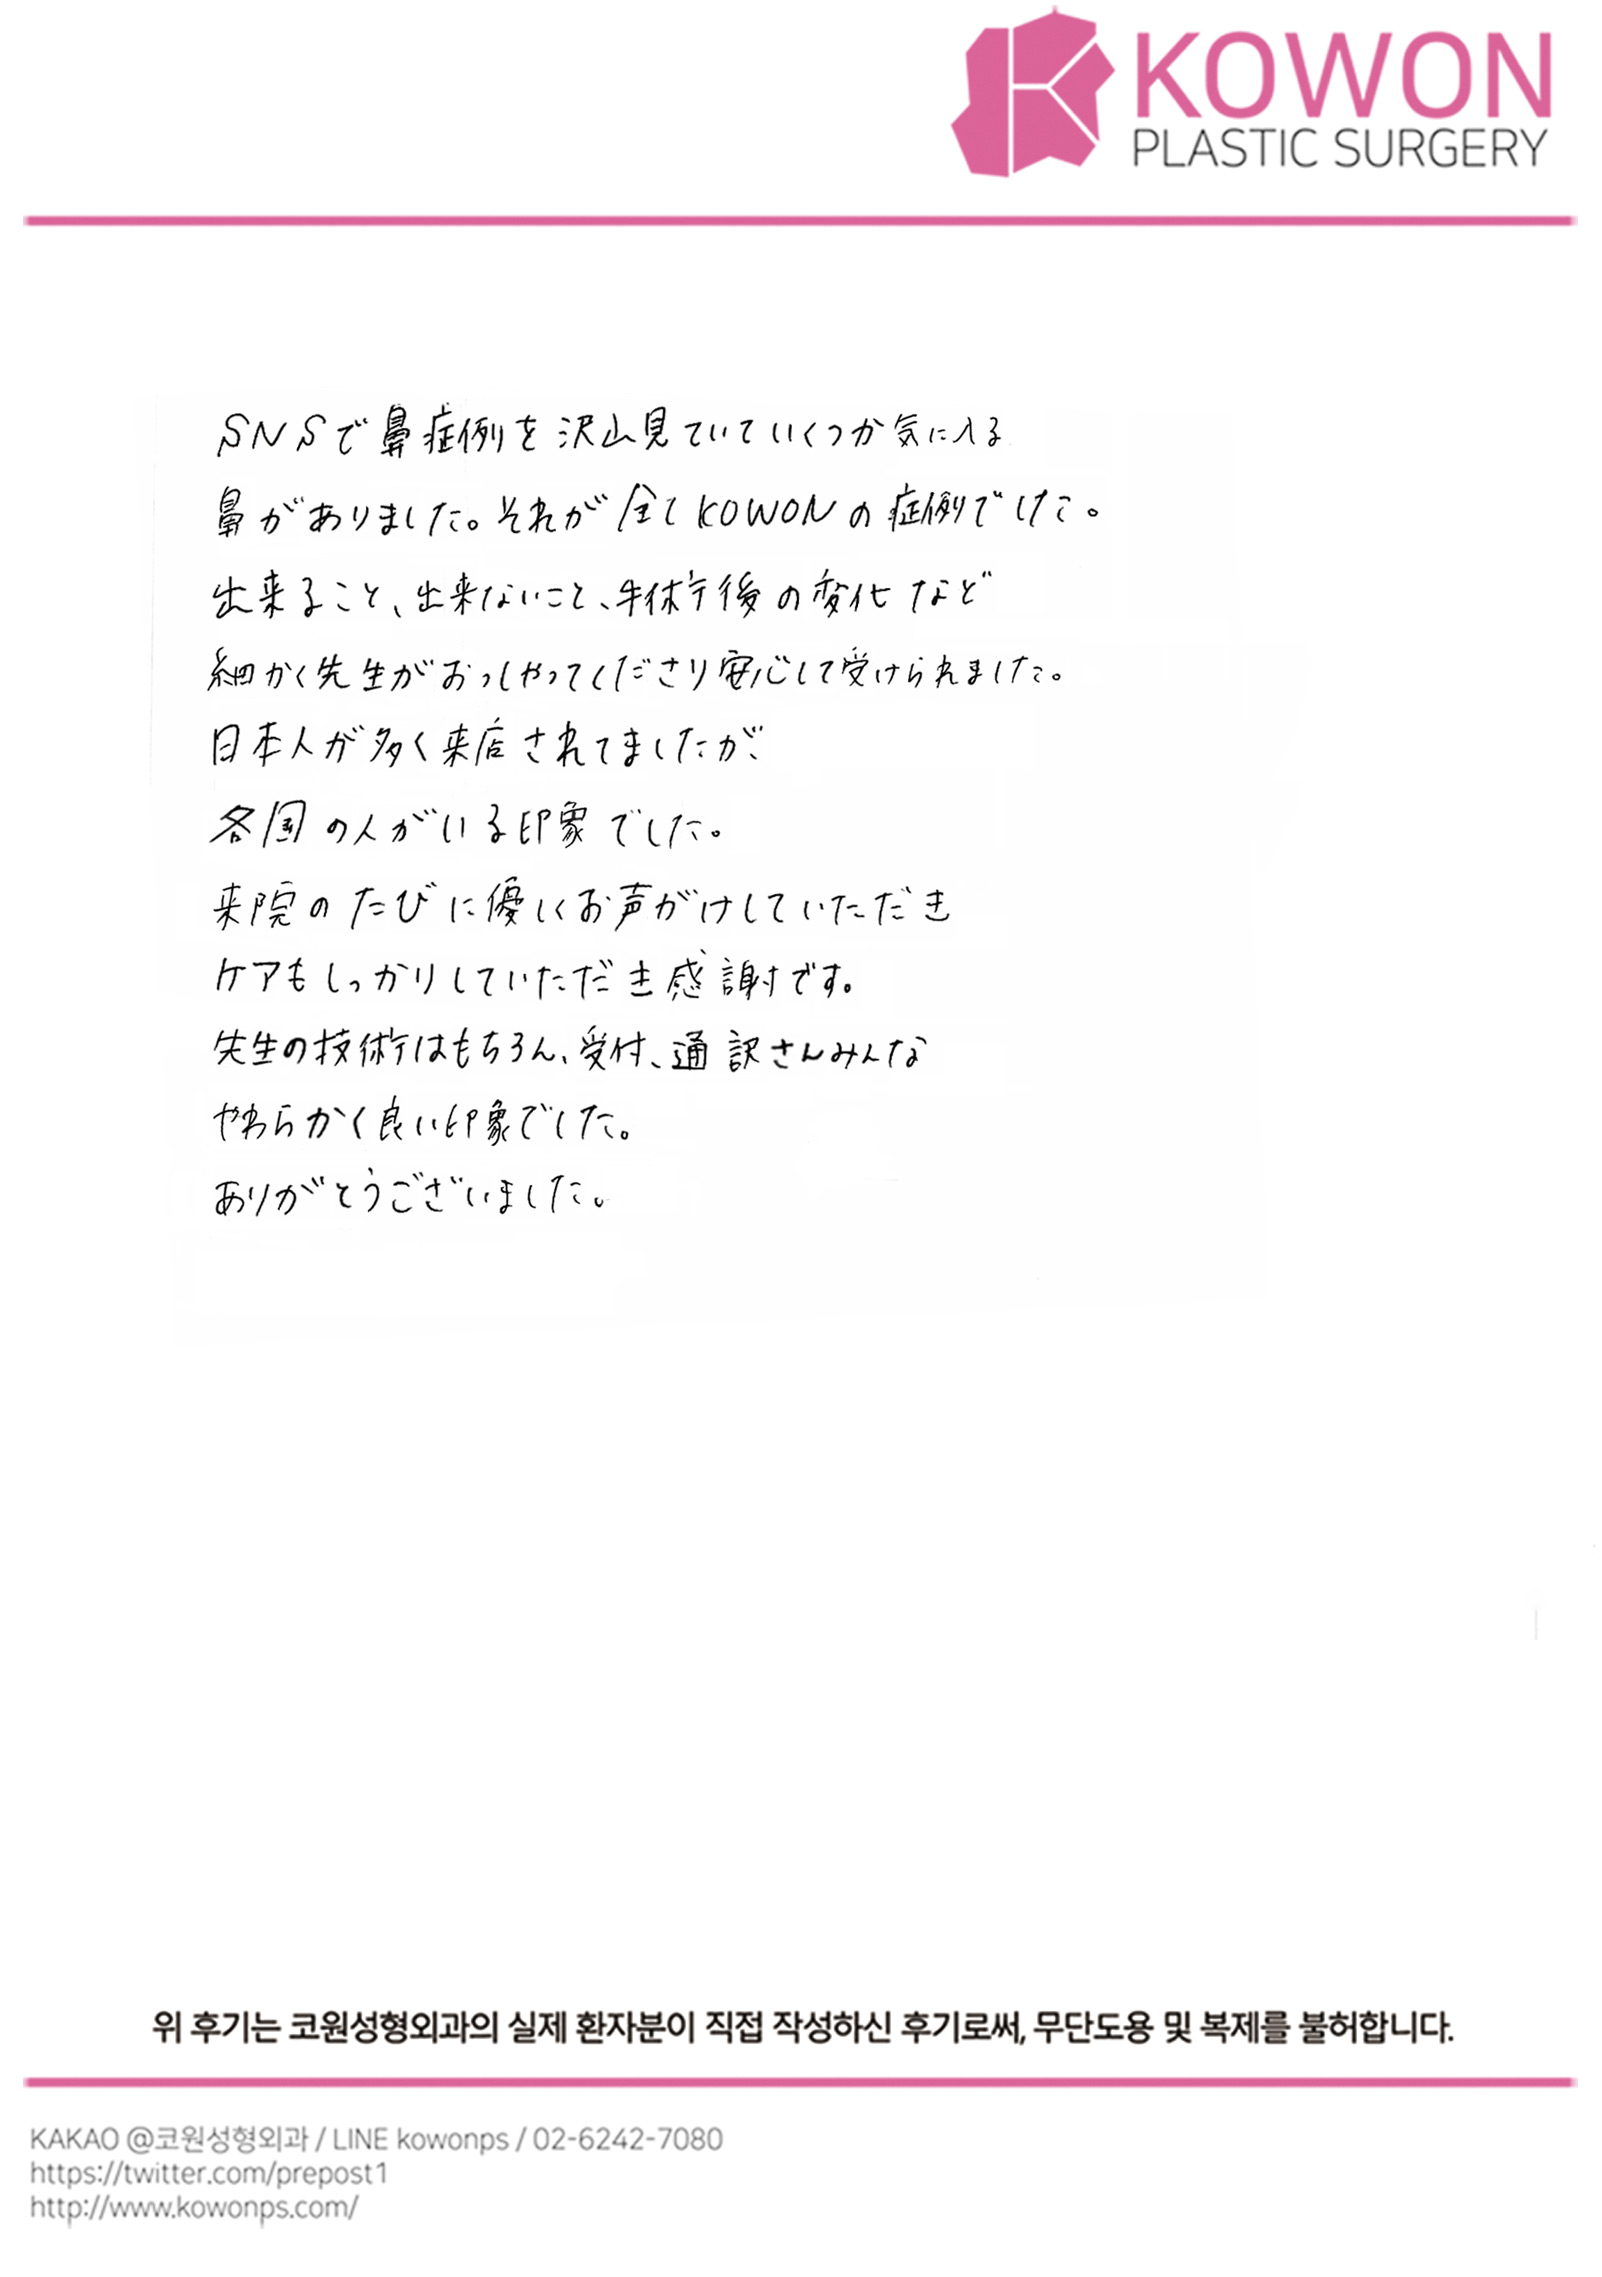 KOWON
PLASTIC SURGERY
SNSで鼻症例を沢山見ていていくつか気に入る
鼻がありました。それが全てKOWONの症例でした。
出来ること、出来ないこと、手術後の変化など
細かく先生がおっしゃってくださり安心して受けられました。
日本人が多く来店されてましたが、
各国の人がいる印象でした。
来院のたびに優しくお声がけしていただき
ケアもしっかりしていただき感謝です。
先生の技術はもちろん、受付、通訳さんみんな
やわらかく良い印象でした。
ありがとうございました。
위 후기는 코원성형외과의 실제 환자분이 직접 작성하신 후기로써, 무단도용 및 복제를 불허합니다.
KAKAO @코원성형외과 / LINE kowonps / 02-6242-7080
https://twitter.com/prepost1
http://www.kowonps.com/